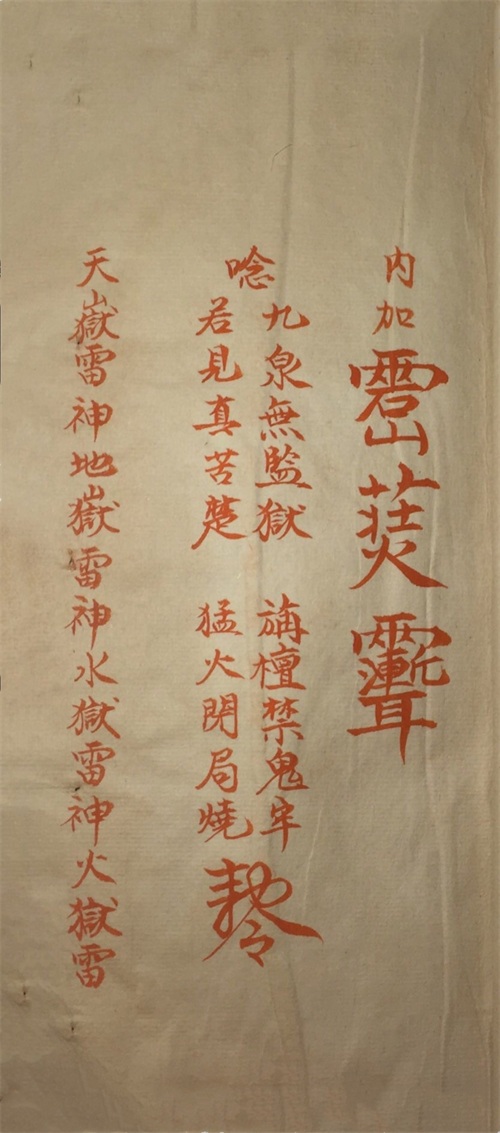 内加
唸
九泉無監獄 旃檀禁鬼牢
若見真苦楚 猛火開局燒
天嶽雷神地嶽雷神水獄雷神火獄雷